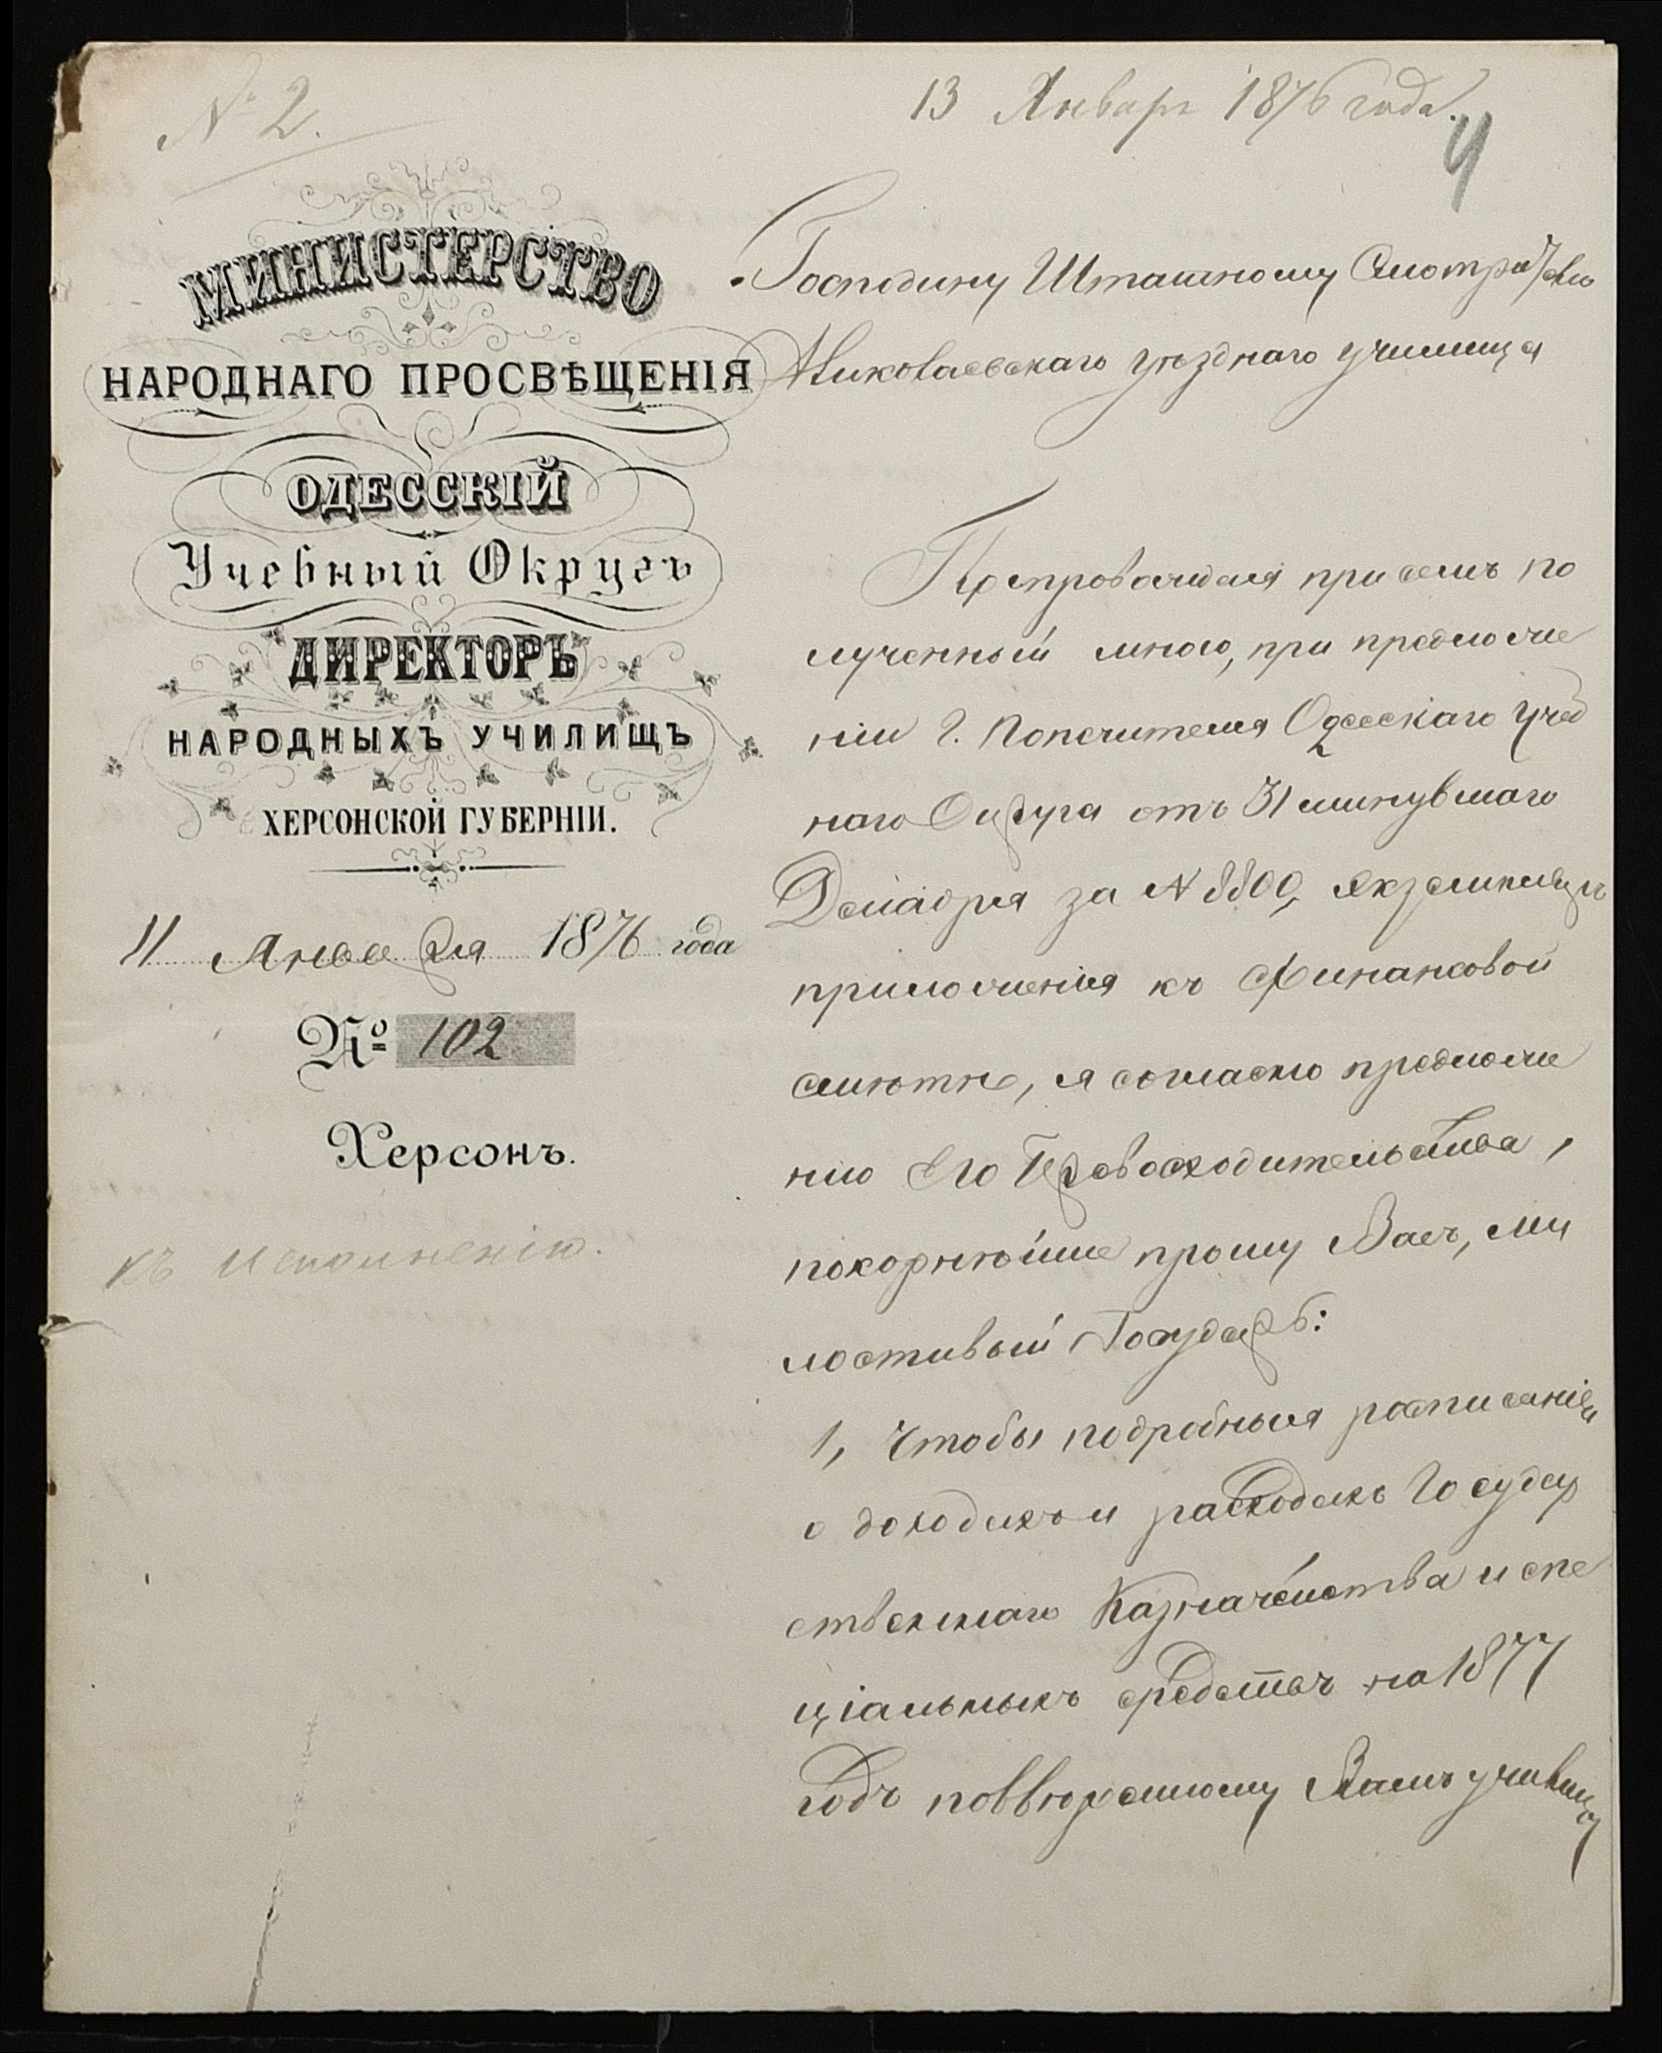 № 2.
13 Январь 1876 года.
4
МИНИСТЕРСТВО
НАРОДНАГО ПРОСВѢЩЕНІЯ
ОДЕССКІЙ
Учебный Округъ
ДИРЕКТОРЪ
НАРОДНЫХЪ УЧИЛИЩЪ
ХЕРСОНСКОЙ ГУБЕРНІИ.
11 Января 1876 года
№ 102
Херсонъ.
къ исполненію.
Господину Штатному Смотрителю
Николаевскаго уѣзднаго училища
Препровождая при семъ по
лученный мною, при предложе
ніи Г. Попечителя Одесскаго Учеб
наго Округа отъ 31 минувшаго
Декабря за № 8800, экземпляръ
приложенія къ Финансовой
смѣтѣ, я согласно предложе
нію Его Превосходительства,
покорнѣйше прошу Васъ, Ми
лостивый Государь:
1, Чтобы подробныя росписанія
о доходахъ и расходахъ Государ
ственнаго Казначейства и спе
ціальныхъ средствъ на 1877
годъ по ввѣренному Вамъ училищу